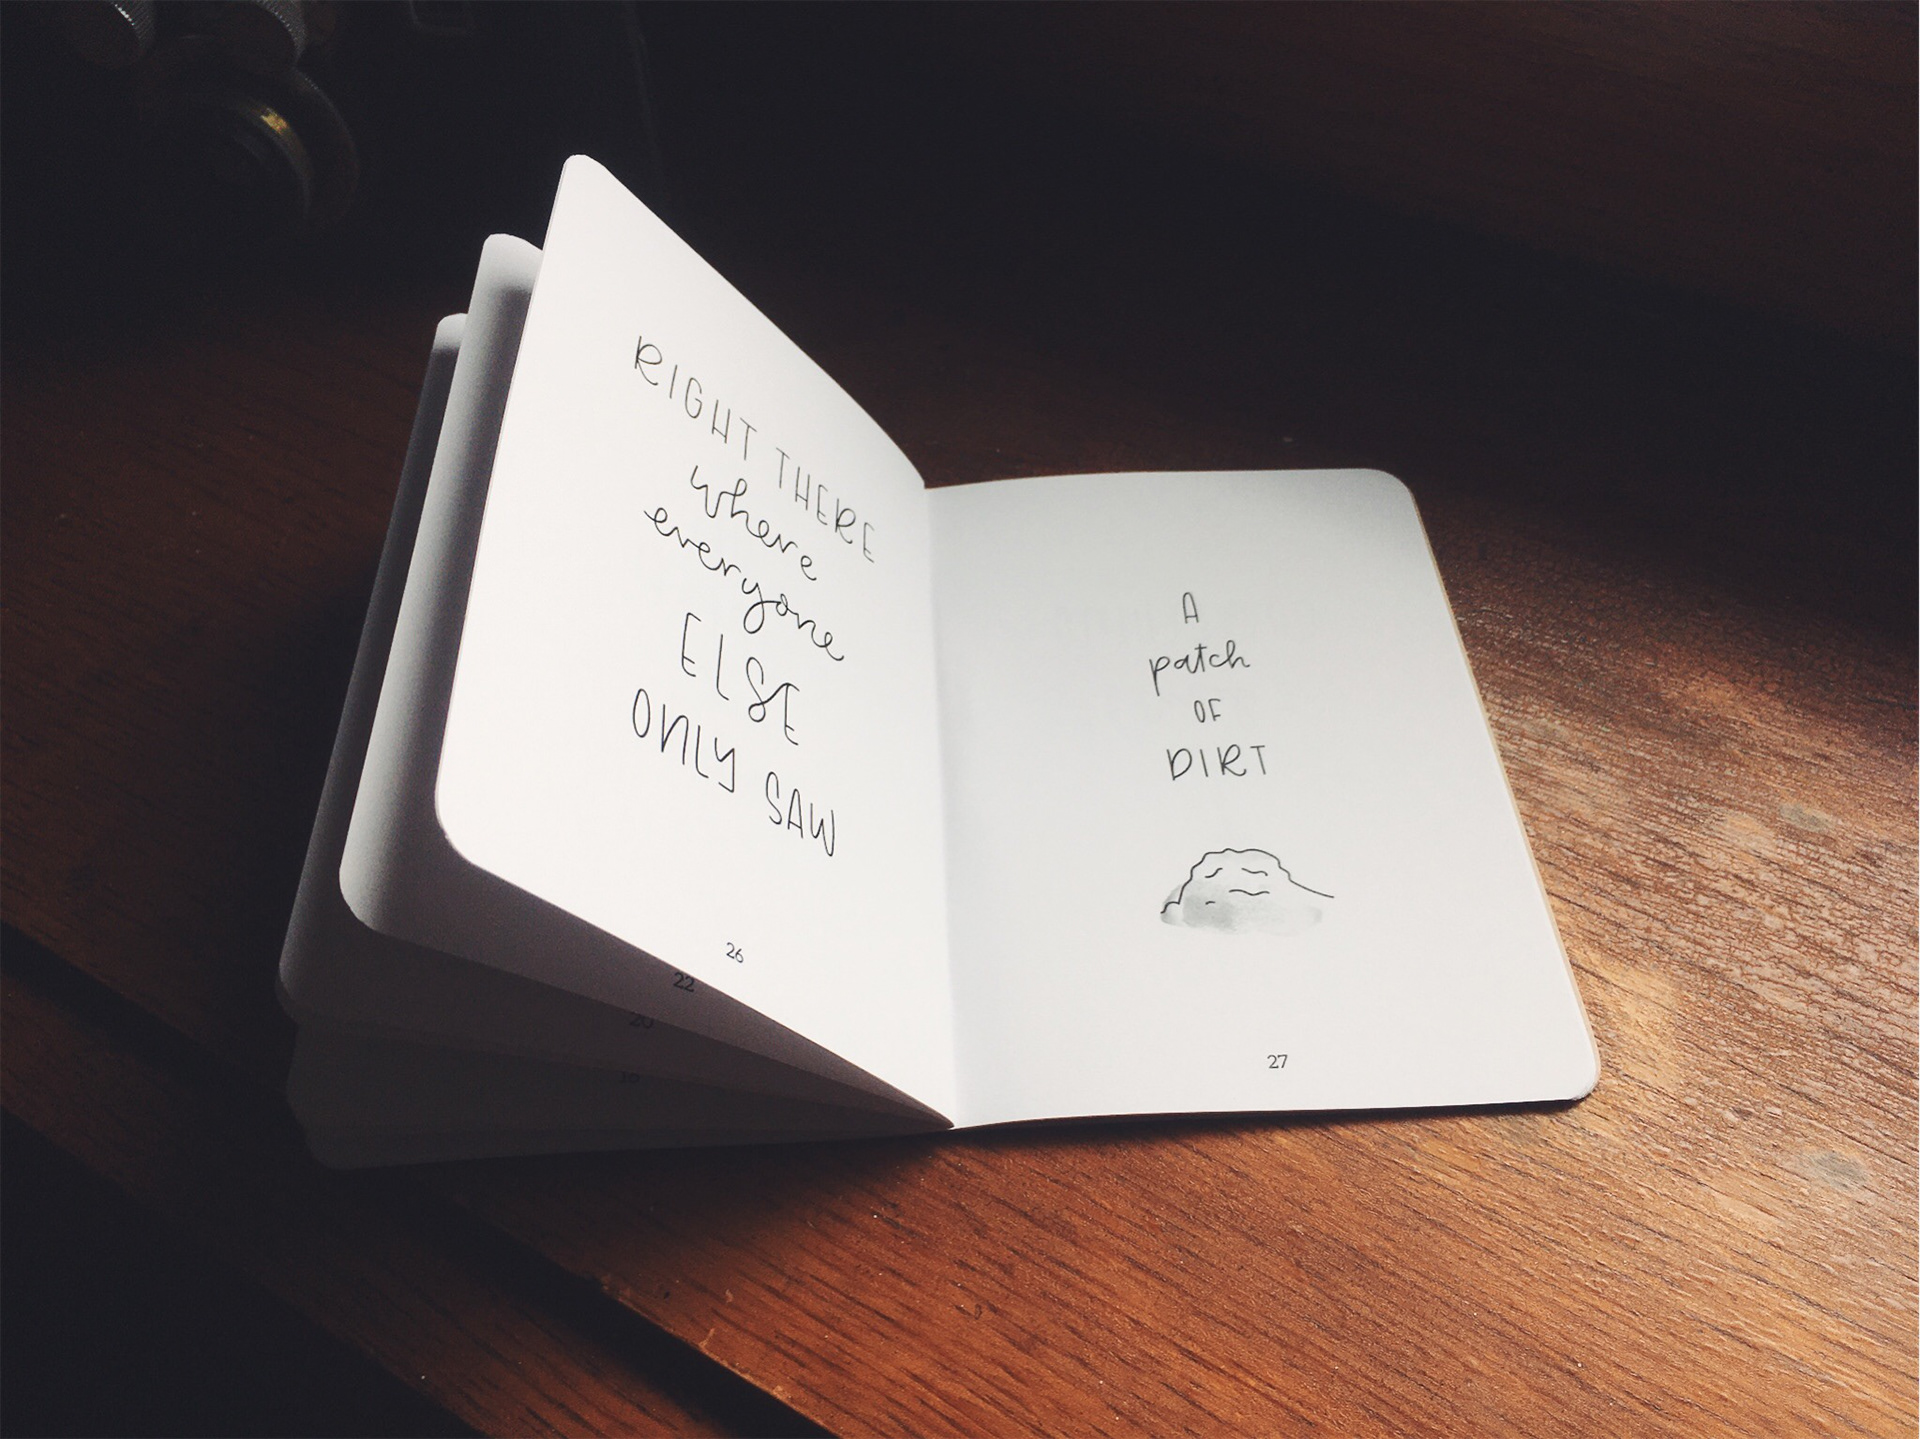 RIGHT THERE
where
everyone
ELSE
ONLY SAW
26
22
20
16
A
patch
OF
DIRT
27